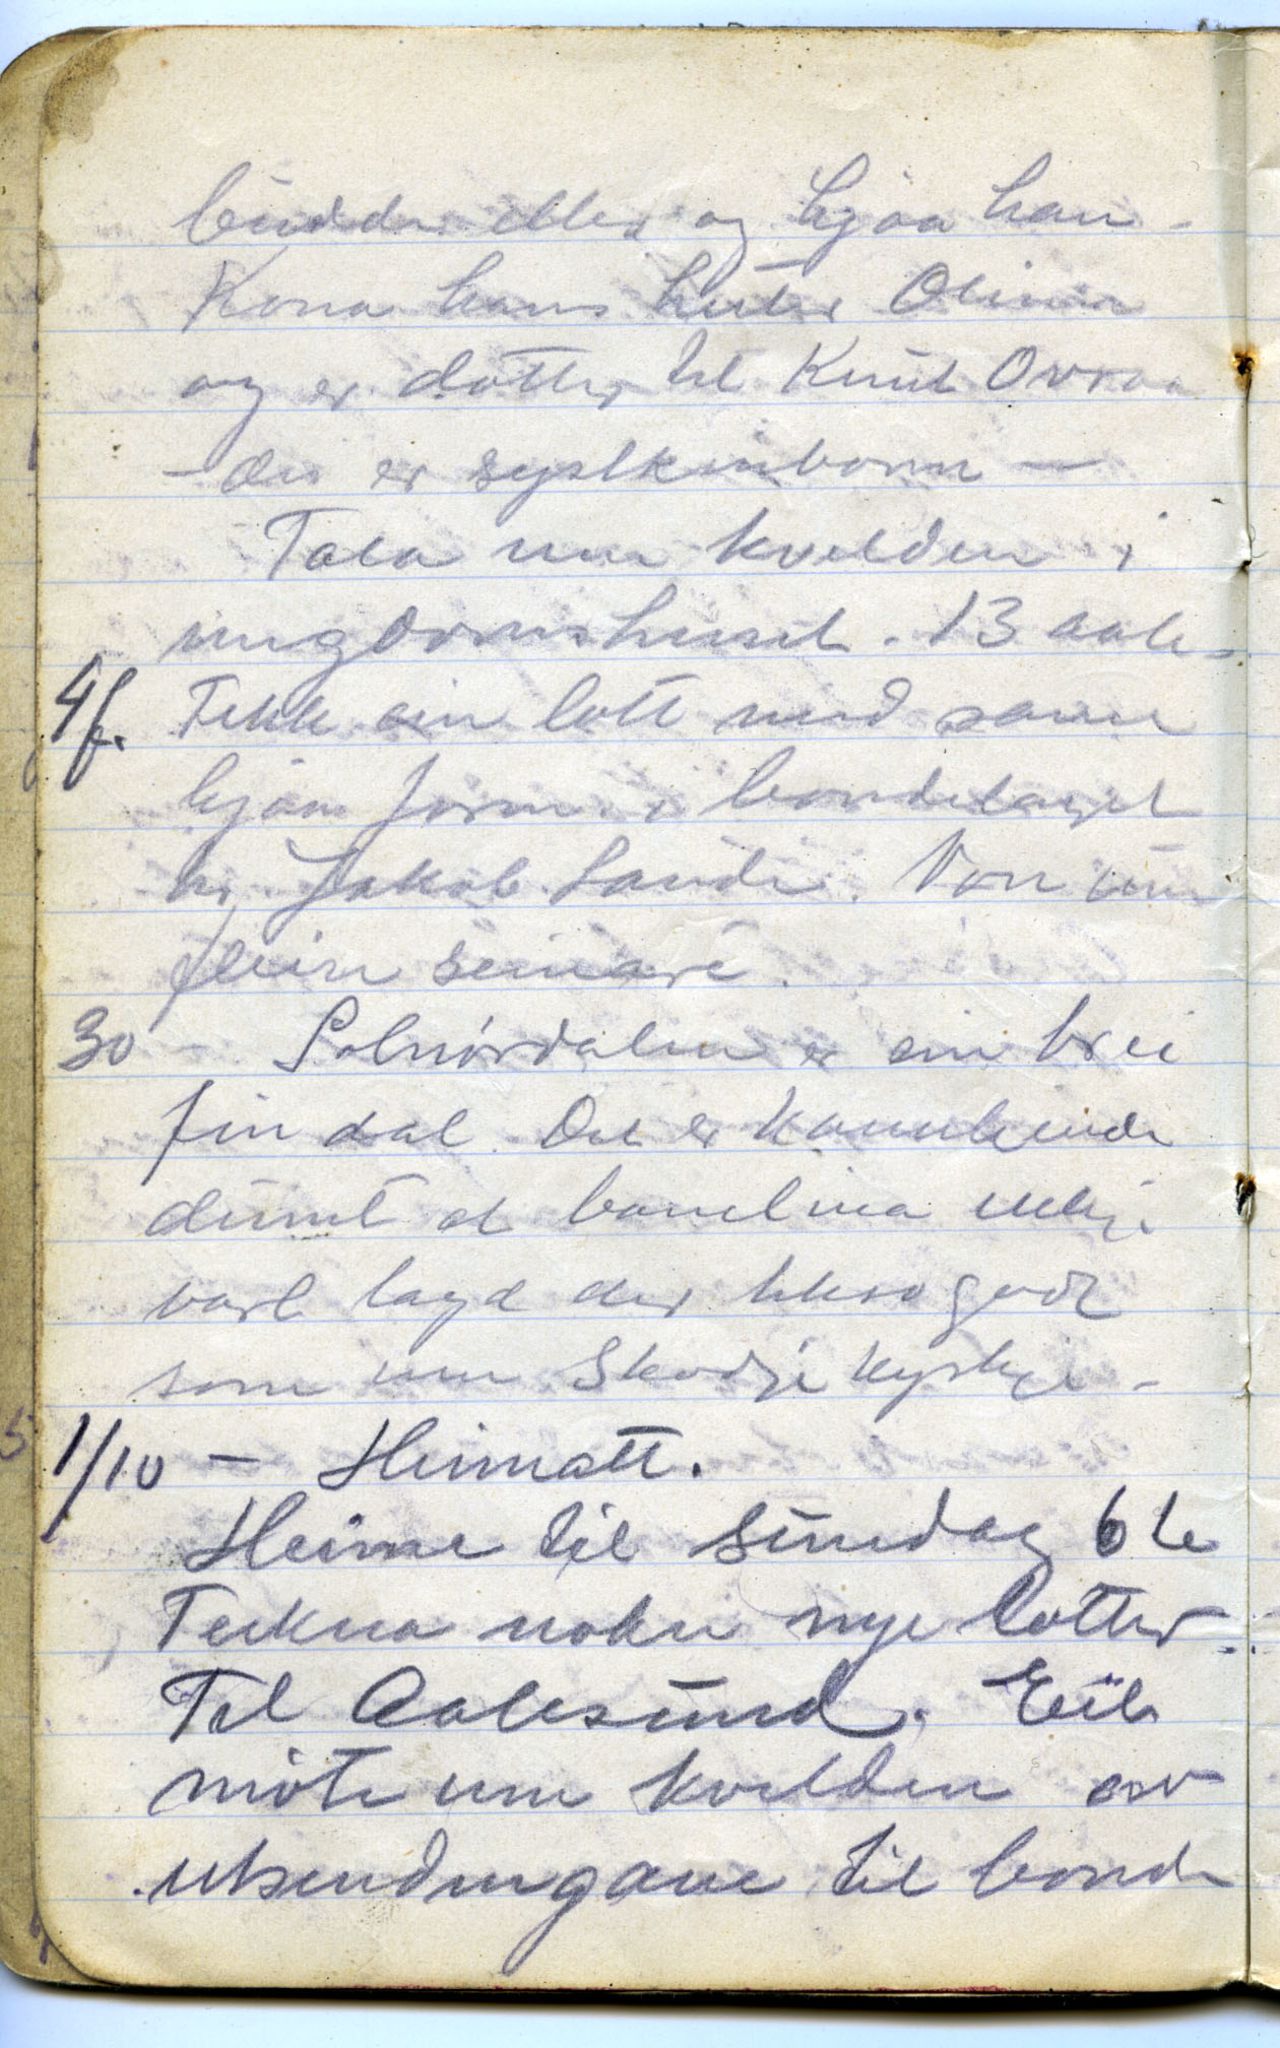 budde eller og hjaa han -
Kona hans heiter Olivia
og er dotter til Knut Ovraa
- dei er syslkinborn -
Tala um kvelden i
ungdomshuset. 13 aale
4f. Fekk ein lott med same
hjaa form. i bondelaget
h. Jakob Lande. Von um
fleire seinare.
30 - Solnördalen er ein brei
fin dal. Det er kannhende
dumt at banelina ikkje
vart lagd der likso godt
som um Skodje kyrkje -
1/10 - Heimatt.
Heime til sundag 6te
Teikna nokre nye lotter.
Til Aalesund. Eit
möte um kvelden av
utsendingane til bonde